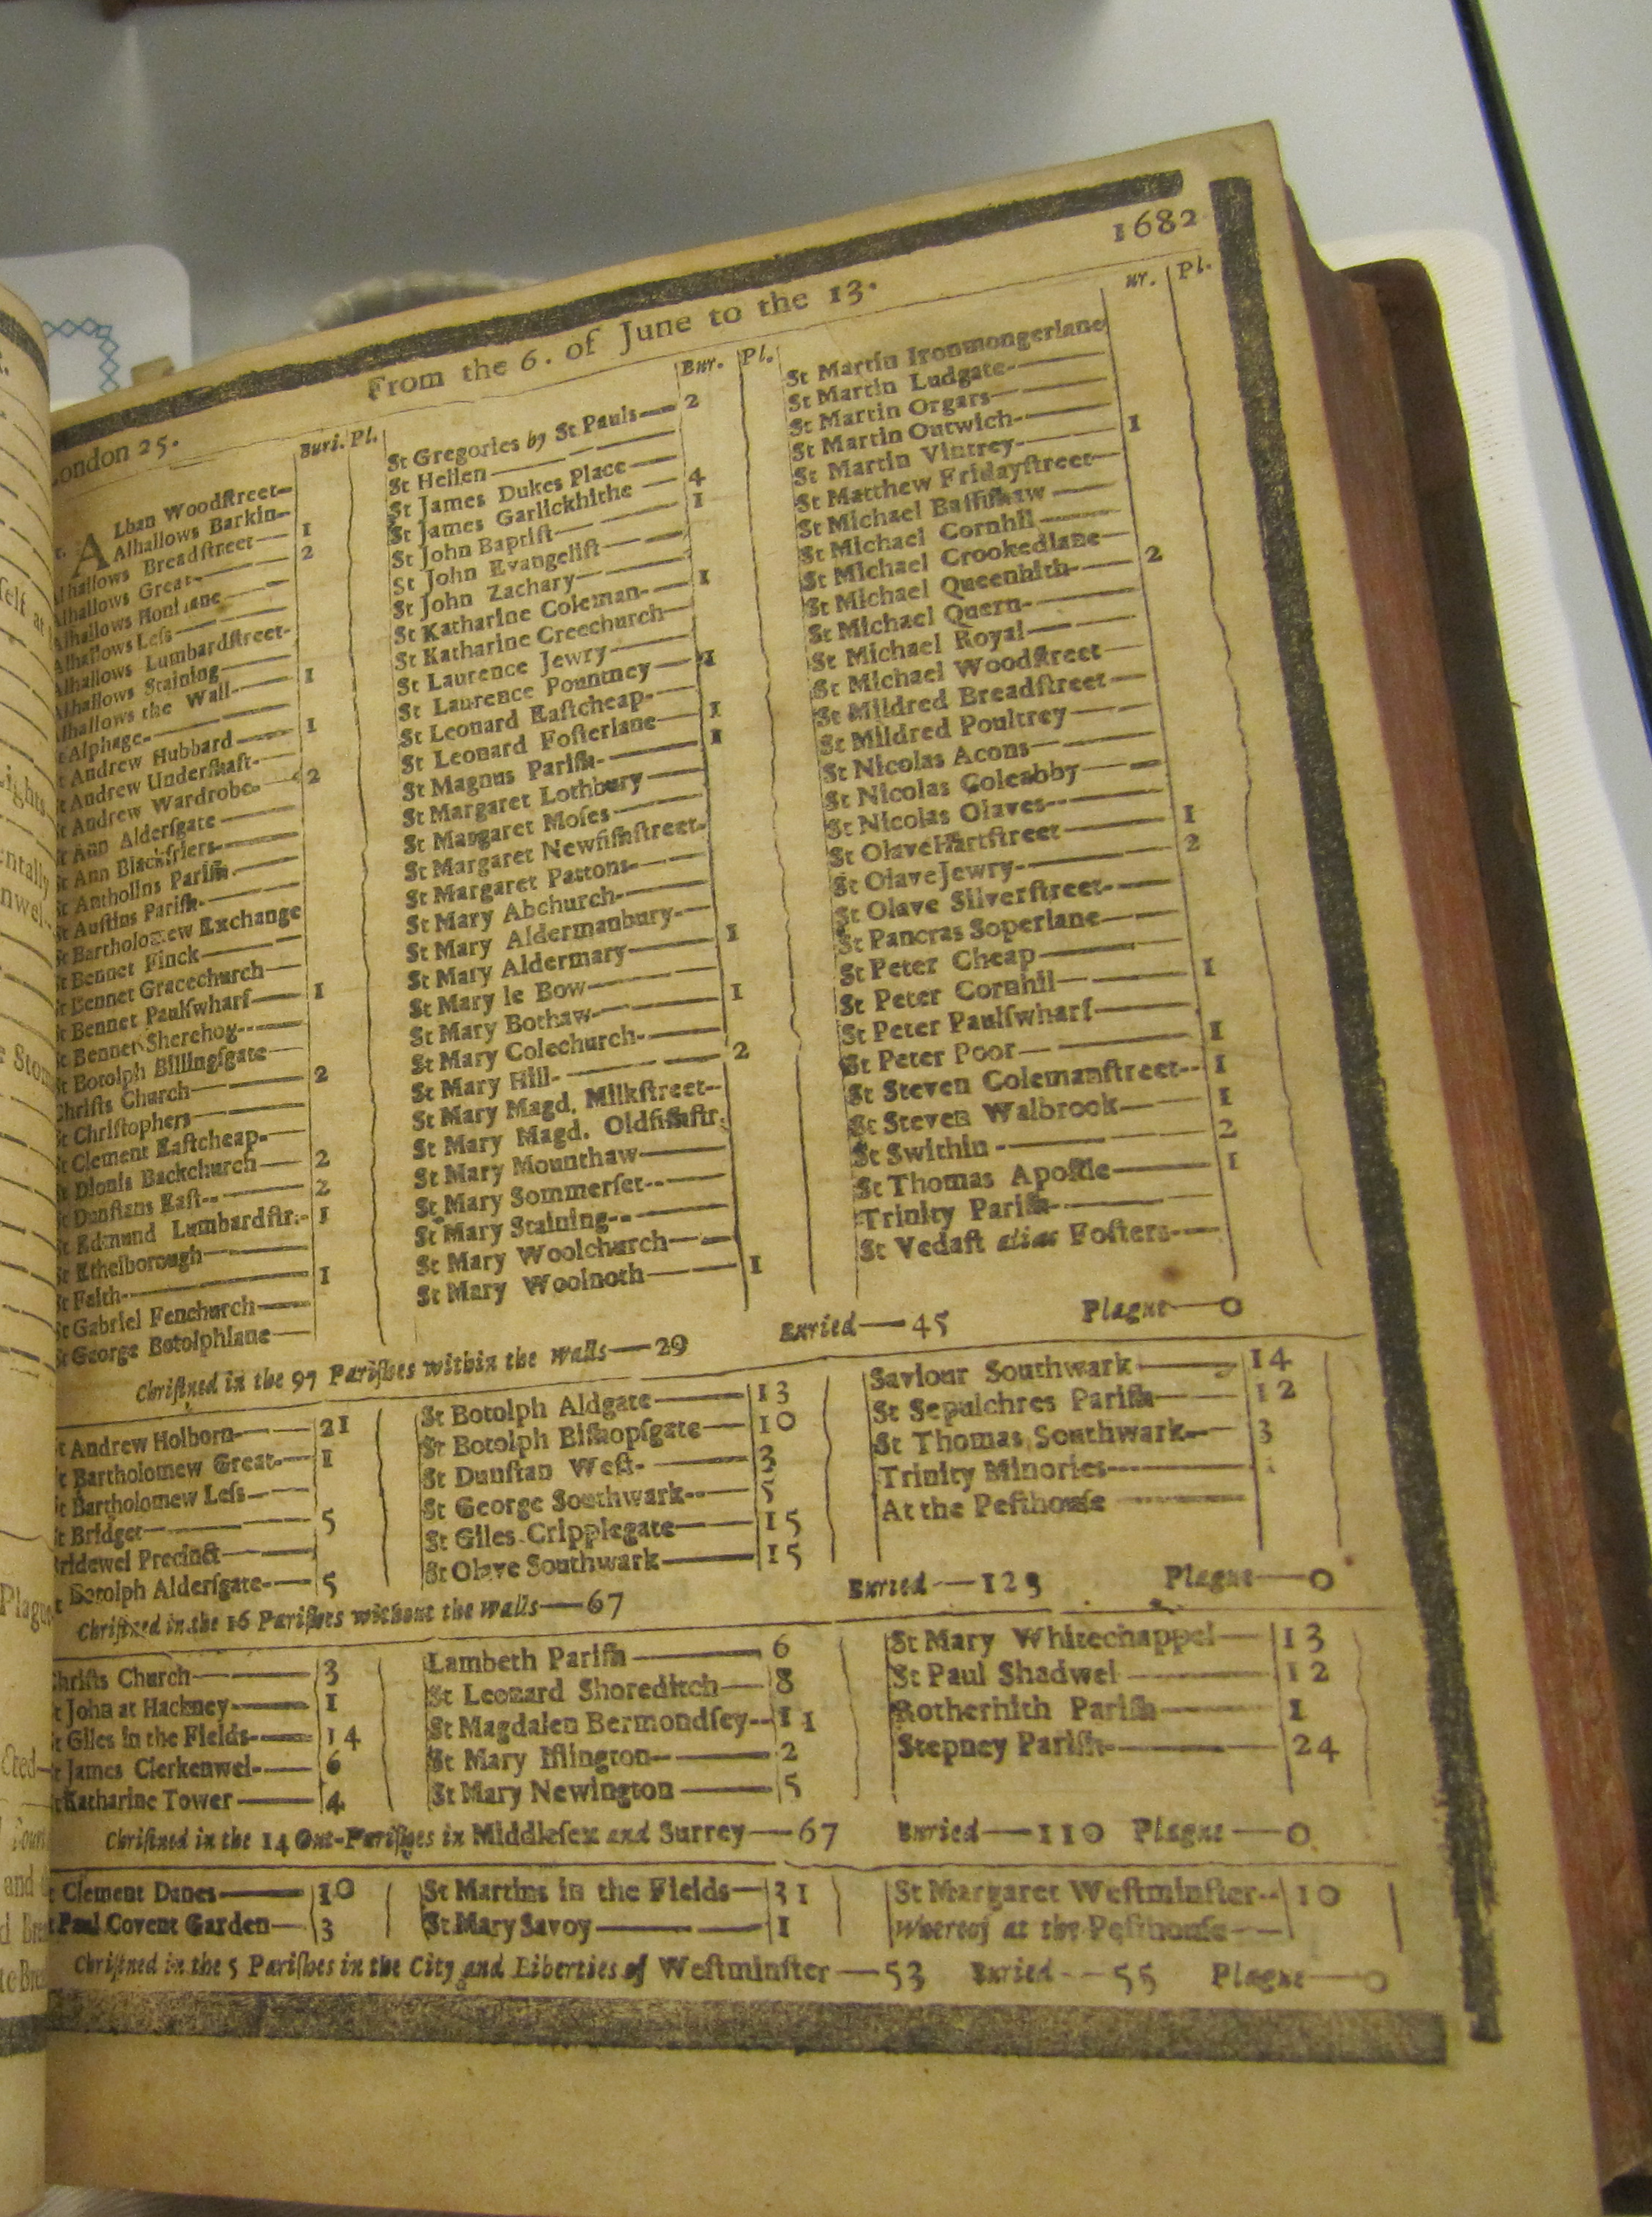 1682
From the 6. of June to the 13.
London 25.
Buri. Pl.
ALban Woodſtreet
Alhallows Barkin
Alhallows Breadſtreet 1
Alhallows Great 2
Alhallows Honilane
Alhallows Leſs
Alhallows Lumbardſtreet
Alhallows Staining
Alhallows the Wall 1
St Alphage
St Andrew Hubbard 1
St Andrew Underſhaft
St Andrew Wardrobe 2
St Ann Alderſgate
St Ann Blackfriers
St Antholins Pariſh
St Auſtins Pariſh
St Bartholomew Exchange
St Bennet Finck
St Bennet Gracechurch
St Bennet Paulſwharf 1
St Bennet Sherehog
St Botolph Billingſgate
Chriſts Church 2
St Chriſtophers
St Clement Eaſtcheap
St Dionis Backchurch 2
St Dunſtans Eaſt 2
St Edmund Lumbardſtr. 1
St Ethelborough
St Faith 1
St Gabriel Fenchurch
St George Botolphlane
Bur. Pl.
St Gregories by St Pauls 2
St Hellen
St James Dukes Place
St James Garlickhithe 4
St John Baptiſt 1
St John Evangeliſt
St John Zachary
St Katharine Coleman 1
St Katharine Creechurch
St Laurence Jewry
St Laurence Pountney 1
St Leonard Eaſtcheap
St Leonard Foſterlane 1
St Magnus Pariſh 1
St Margaret Lothbury
St Margaret Moſes
St Margaret Newfiſhſtreet
St Margaret Pattons
St Mary Abchurch
St Mary Aldermanbury
St Mary Aldermary 1
St Mary le Bow
St Mary Bothaw 1
St Mary Colechurch
St Mary Hill 2
St Mary Magd. Milkſtreet
St Mary Magd. Oldfiſhſtr.
St Mary Mounthaw
St Mary Sommerſet
St Mary Staining
St Mary Woolchurch
St Mary Woolnoth 1
ur. Pl.
St Martin Ironmongerlane
St Martin Ludgate
St Martin Orgars
St Martin Outwich
St Martin Vintrey 1
St Matthew Fridayſtreet
St Michael Baſſiſhaw
St Michael Cornhil
St Michael Crookedlane
St Michael Queenhith 2
St Michael Quern
St Michael Royal
St Michael Woodſtreet
St Mildred Breadſtreet
St Mildred Poultrey
St Nicolas Acons
St Nicolas Coleabby
St Nicolas Olaves
St Olave Hartſtreet 1
St Olave Jewry 2
St Olave Silverſtreet
St Pancras Soperlane
St Peter Cheap
St Peter Cornhil 1
St Peter Paulſwharf
St Peter Poor 1
St Steven Colemanſtreet 1
St Steven Walbrook 1
St Swithin 2
St Thomas Apoſtle 1
Trinity Pariſh
St Vedaſt alias Foſters
Chriſtned in the 97 Pariſhes within the walls—29 Buried—45 Plague—0
St Andrew Holborn 21
St Bartholomew Great 1
St Bartholomew Leſs
St Bridget 5
Bridewel Precinct
St Botolph Alderſgate 5
St Botolph Aldgate 13
St Botolph Biſhopſgate 10
St Dunſtan Weſt 3
St George Southwark 5
St Giles Cripplegate 15
St Olave Southwark 15
Saviour Southwark 14
St Sepulchres Pariſh 12
St Thomas Southwark 3
Trinity Minories
At the Peſthouſe
Chriſtned in the 16 Pariſhes without the walls—67 Buried—123 Plague—0
Chriſts Church 3
St John at Hackney 1
St Giles in the Fields 14
St James Clerkenwel 6
St Katharine Tower 4
Lambeth Pariſh 6
St Leonard Shoreditch 8
St Magdalen Bermondſey 11
St Mary Iſlington 2
St Mary Newington 5
St Mary Whitechappel 13
St Paul Shadwel 12
Rotherhith Pariſh 1
Stepney Pariſh 24
Chriſtned in the 14 Out-Pariſhes in Middleſex and Surrey—67 Buried—110 Plague—0
St Clement Danes 10
St Paul Covent Garden 3
St Martins in the Fields 31
St Mary Savoy 1
St Margaret Weſtminſter 10
Whereof at the Peſthouſe
Chriſtned in the 5 Pariſhes in the City and Liberties of Weſtminſter—53 Buried—55 Plague—0